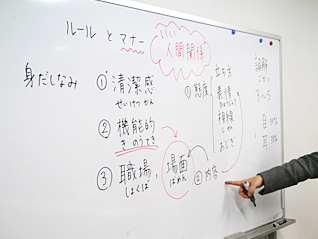 ルール と マナー
人間関係
身だしなみ
① 清潔感
せいけつ かん
② 機能的
きのうてき
③ 職場
しょくば
場面
ばめん
① 態度
立ち方
表情
ひょうじょう
視線
しせん
おじぎ
② 内容
誤解
ごかい
3～5
目
耳